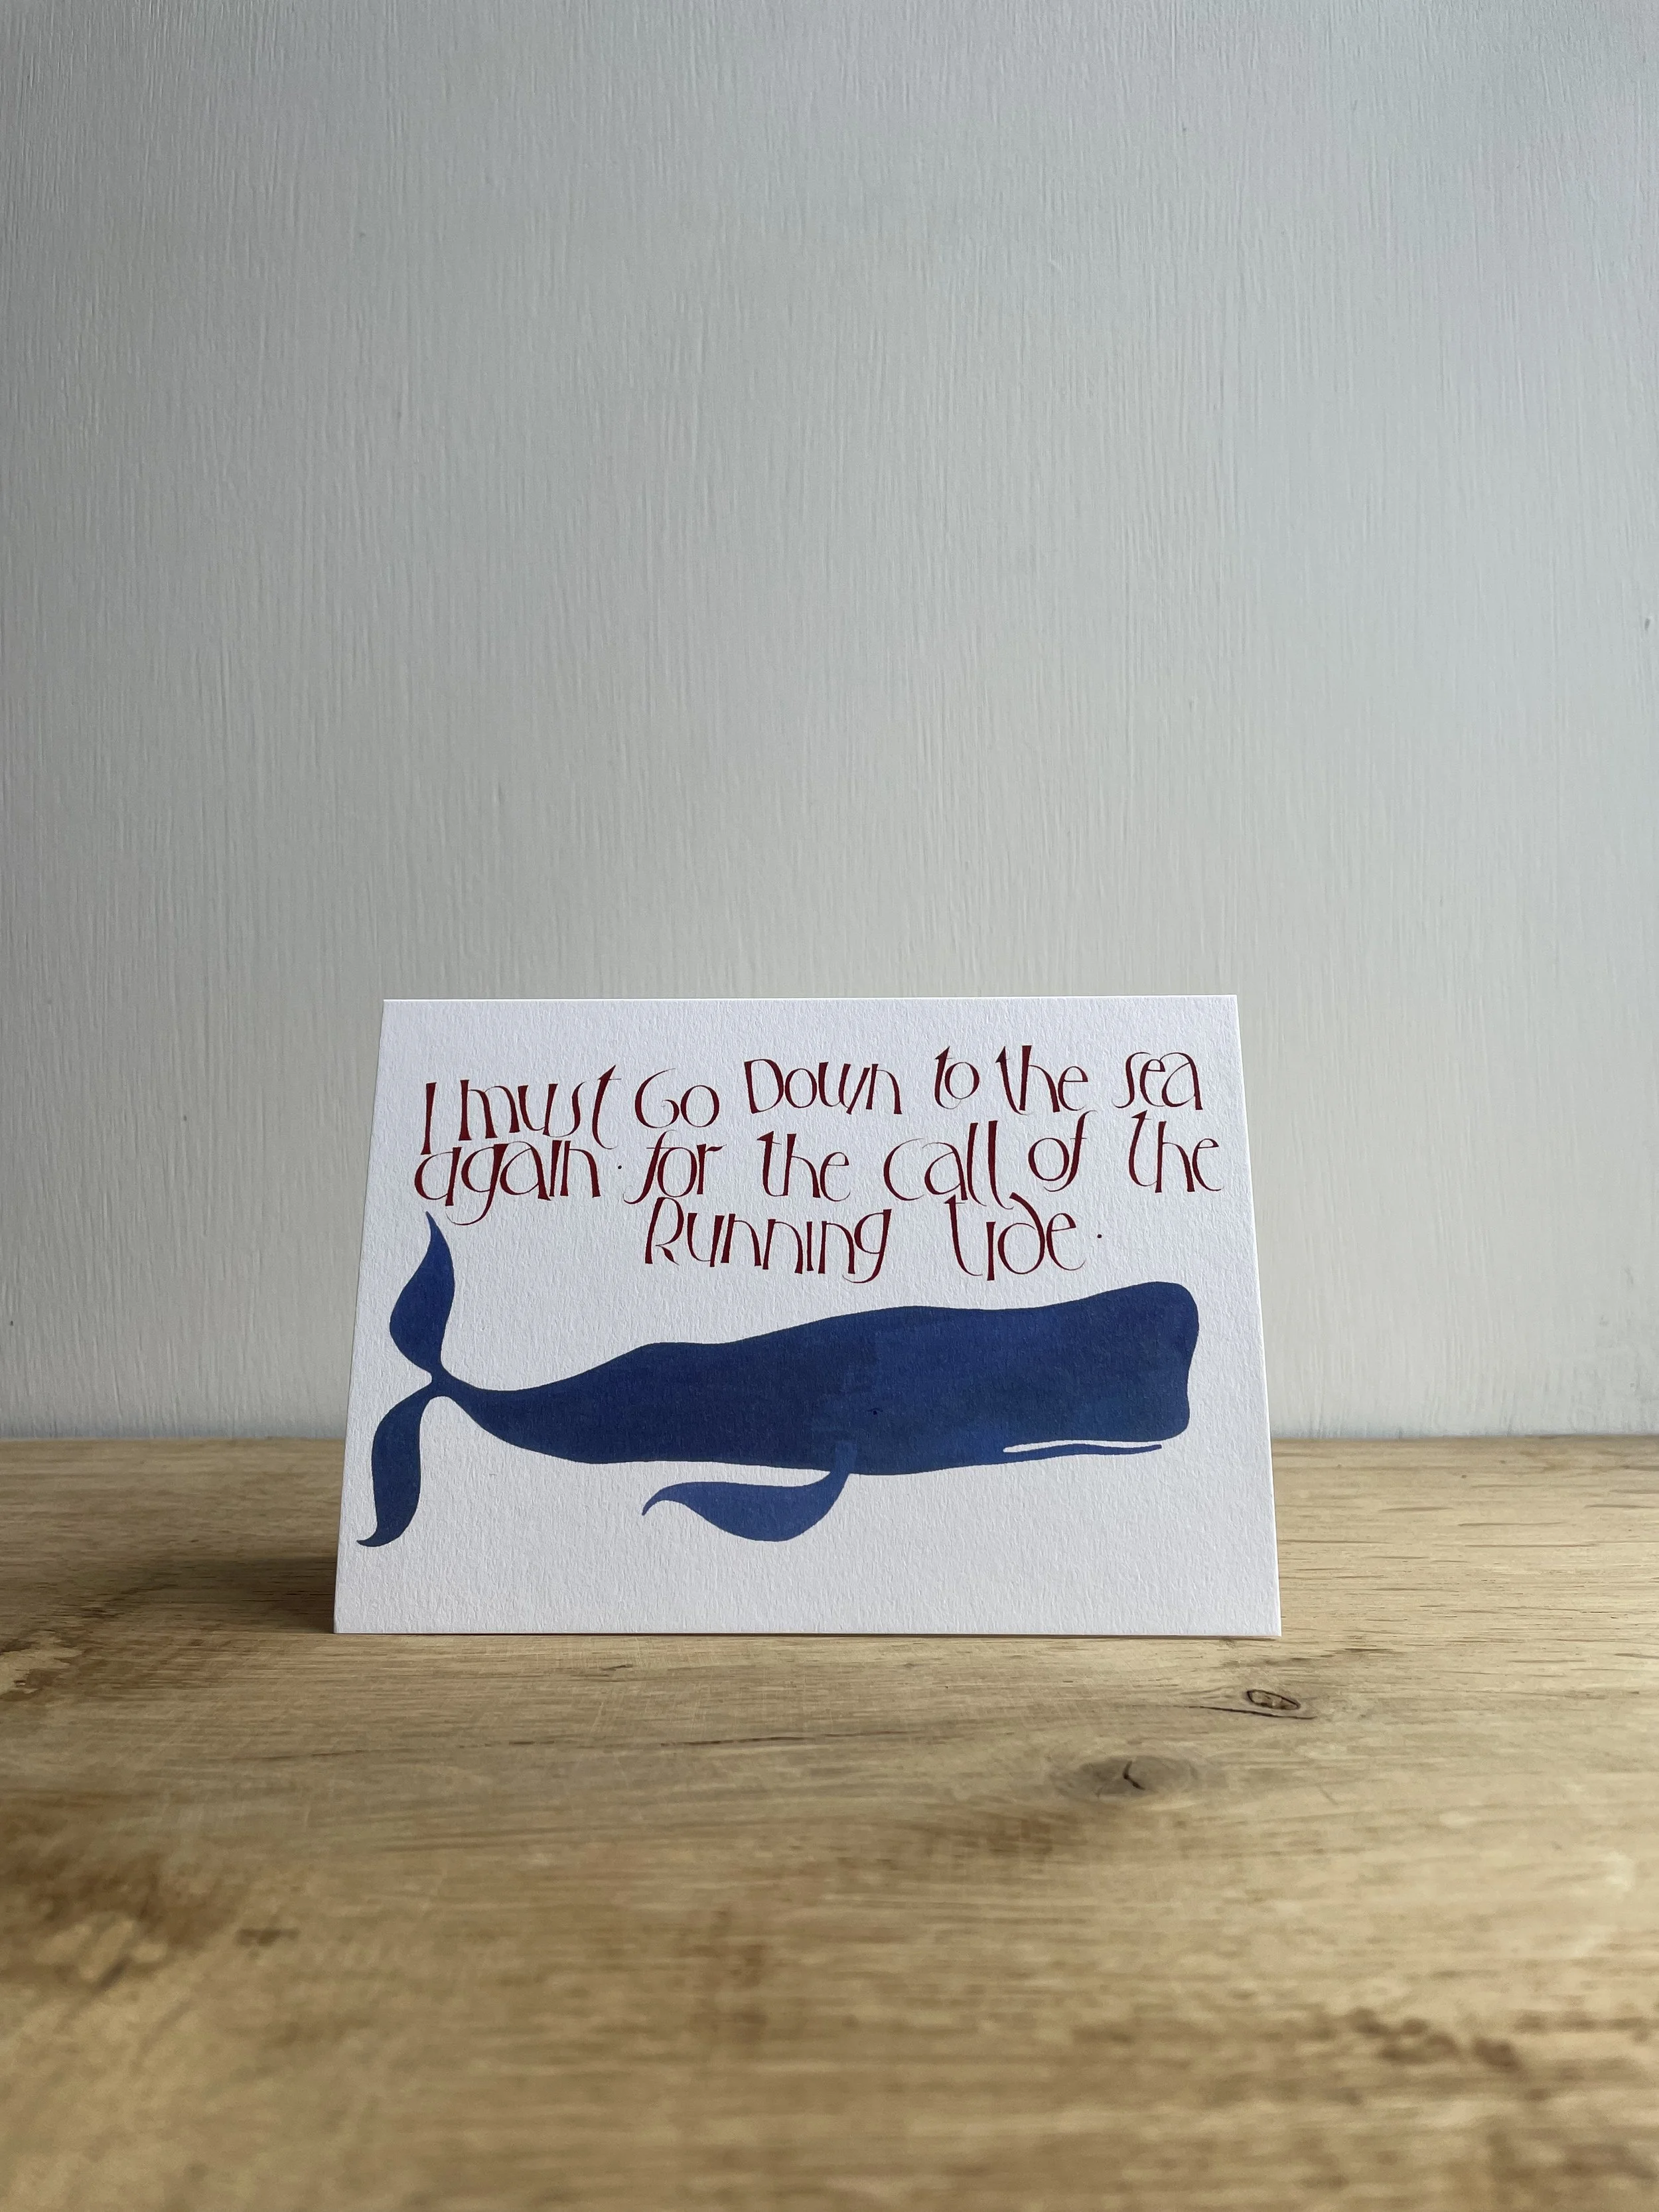 I must Go Down to the sea
again · for the call of the
Running tide ·